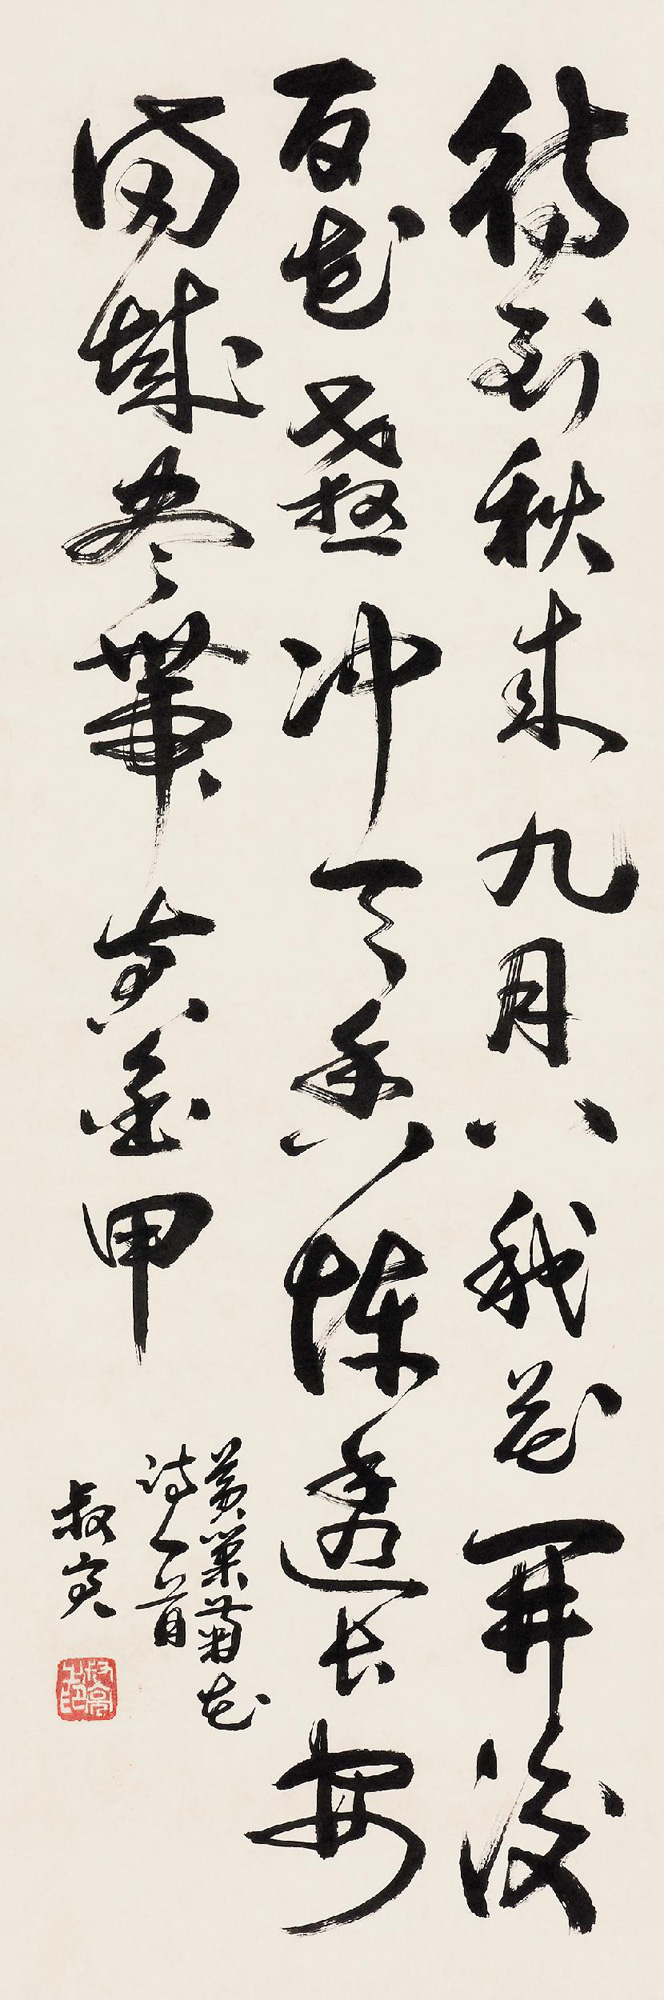 待到秋來九月八我花開後
百花殺冲天香陣透長安
滿城盡帶黃金甲
黃巢菊花
詩一首
叔亮
叔亮之印